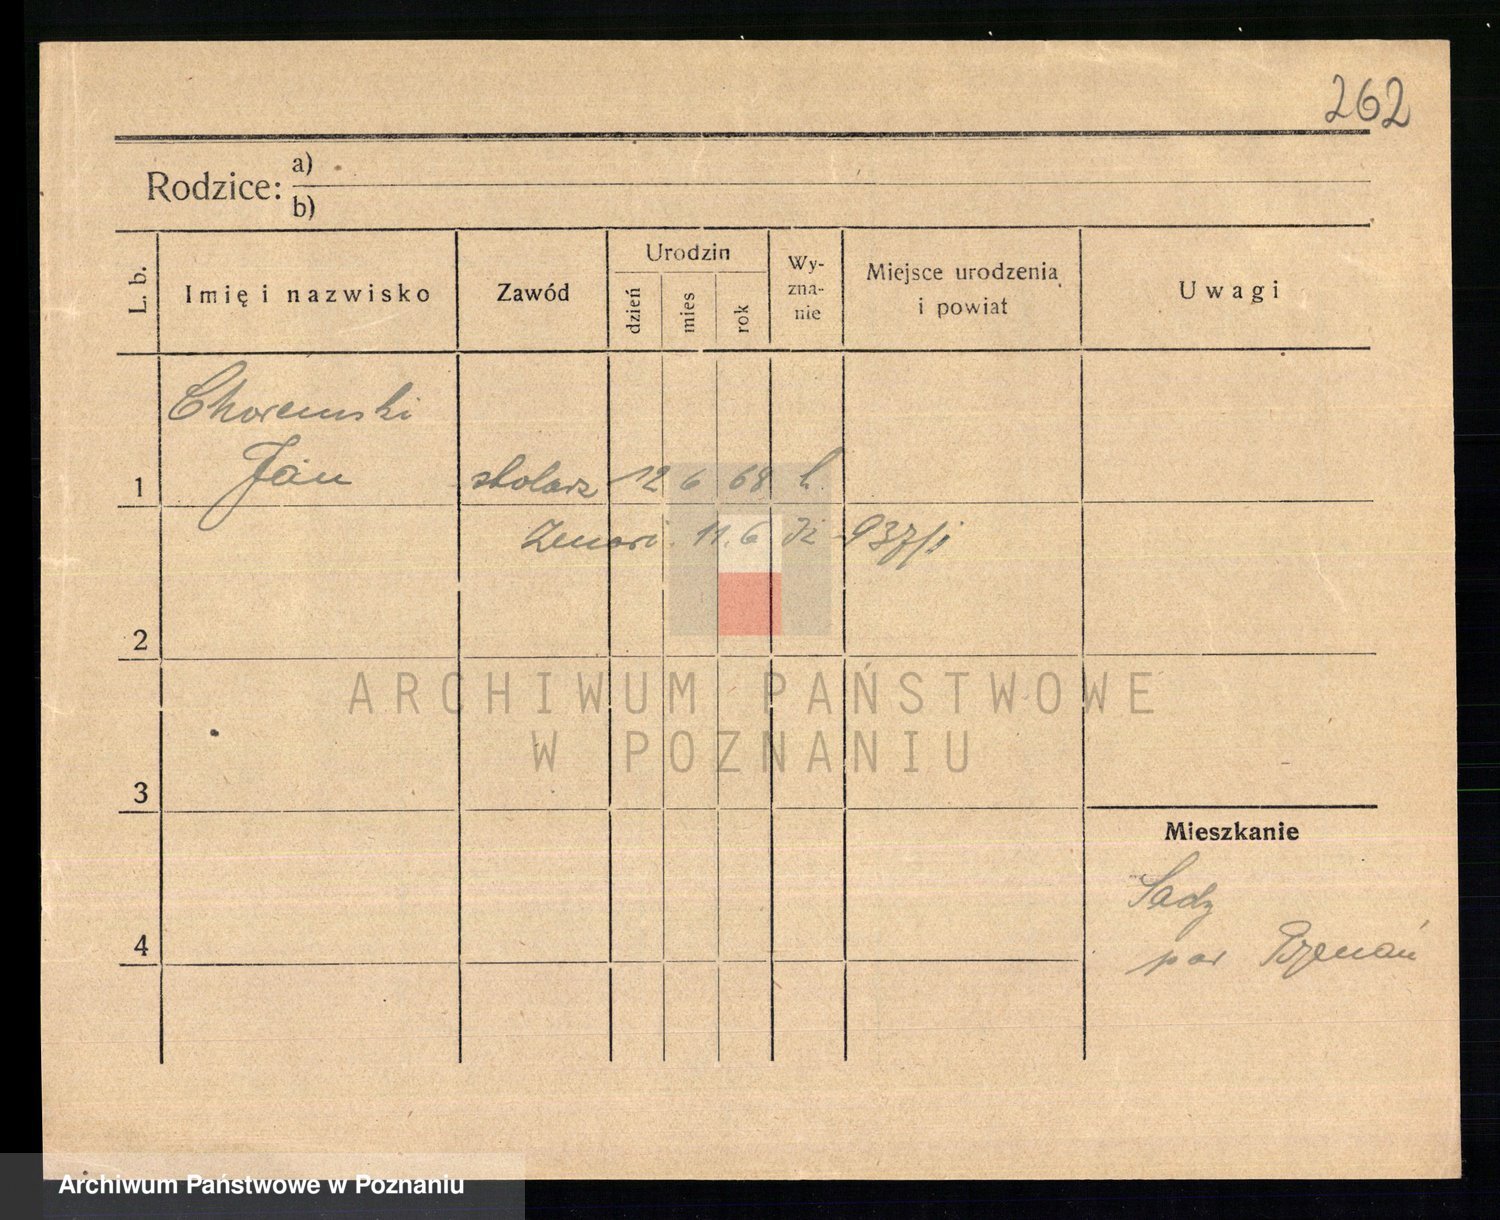 262
Rodzice: a)
b)
L. b.
Imię i nazwisko
Zawód
Urodzin
dzień
mies
rok
Wy-
zna-
nie
Miejsce urodzenia
i powiat
Uwagi
Choremski
Jan
1 stolarz 12 6 68 k.
11. 6 937
2
ARCHIWUM PAŃSTWOWE
W POZNANIU
3
Mieszkanie
Sady
4
Poznań
Archiwum Państwowe w Poznaniu